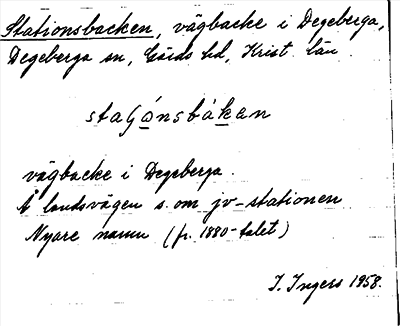 Stationsbacken, vägbacke i Degeberga,
Degeberga sn, Gärds hd, Krist. län.
staʃónsbákan
vägbacke i Degeberga.
Å landsvägen s. om jv-stationen
Nyare namn (fr. 1880-talet)
I. Ingers 1958.